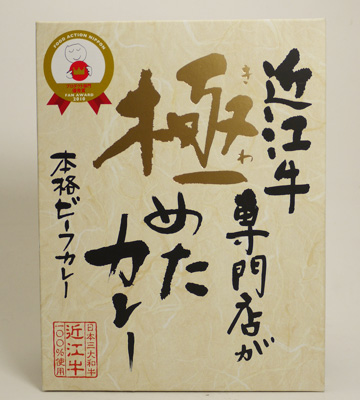 近江牛
専門店が
極めた
きわ
カレー
本格ビーフカレー
日本三大和牛
近江牛
一〇〇%使用
FOOD ACTION NIPPON
FAN AWARD
2016